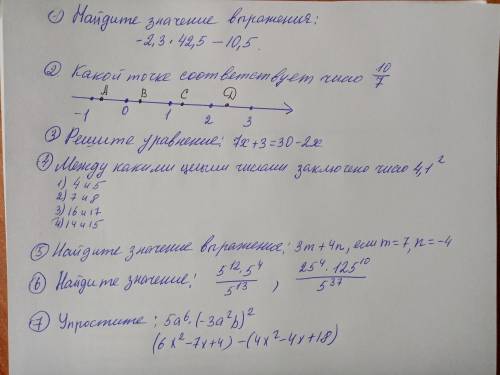 ① Найдите значение выражения:
-2,3 · 42,5 - 10,5.
② Какой точке соответствует число 10/7
A B C D
-1 0 1 2 3
③ Решите уравнение: 7x+3=30-2x
④ Между какими целыми числами заключено число 4,1²
1) 4 и 5
2) 7 и 8
3) 16 и 17
4) 14 и 15
⑤ Найдите значение выражение: 3m+4n, если m=7, n=-4
⑥ Найдите значение: 5¹²·5⁴/5¹³ , 25⁴·125¹⁰/5³⁷
⑦ Упростите: 5a⁶·(-3a²b)²
(6x²-7x+4)-(4x²-4x+18)